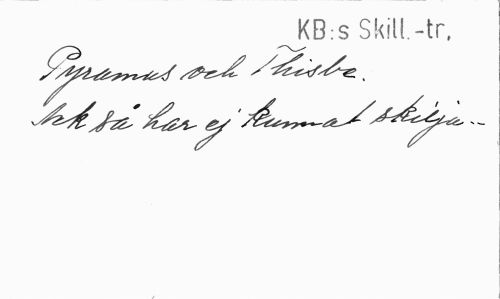 KB:s Skill.-tr,
Pyramus och Thisbe.
Ack så har ej kunnat skilja--